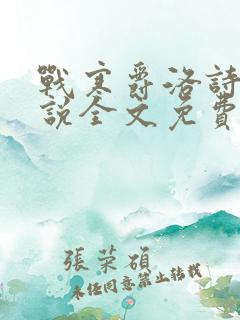 戰寒爵洛詩
說全文免費
張榮碩
未經同意禁止轉載